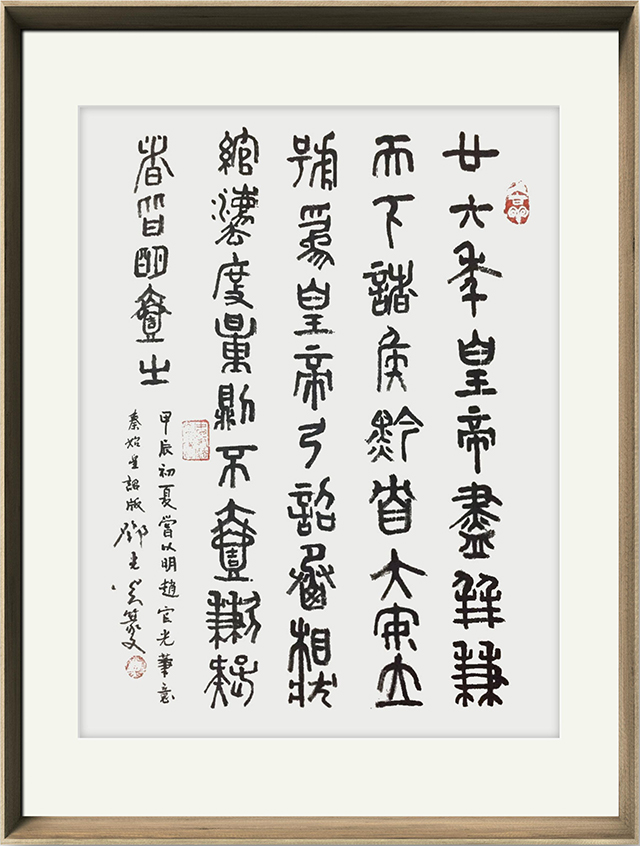 廿六年皇帝盡并兼
天下諸侯黔首大安立
號爲皇帝乃詔丞相狀
綰灋度量則不壹歉疑
者皆明壹之
甲辰初夏嘗以明趙宧光筆意
秦始皇詔版